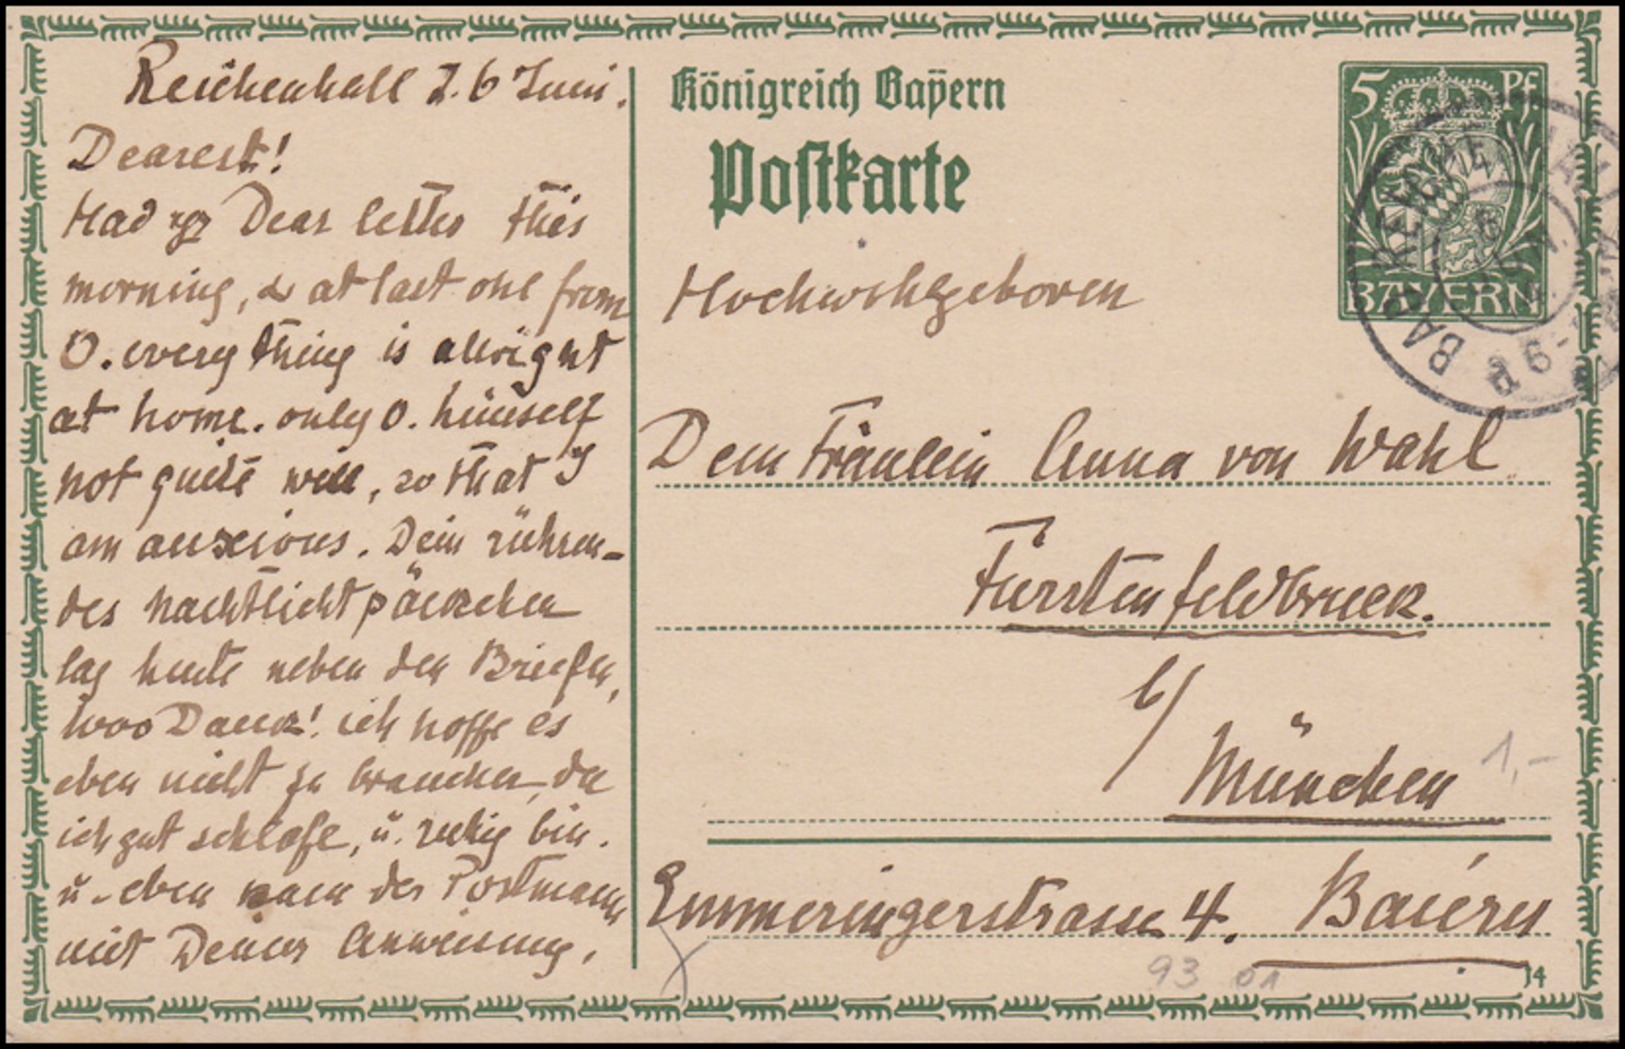 Reichenhall d. 6 Juni.
Dearest!
Had yr Dear letter this
morning, & at last one from
O. everything is allright
at home. only O. himself
not quite well, so that I
am anxious. Dein rühren-
des Nachtlichtpäckchen
lag heute neben den Briefen,
1000 Dank! ich hoffe es
eben nicht zu brauchen, da
ich gut schlafe, u. ruhig bin.
u. eben kam der Postmann
mit Deiner Anweisung.
Königreich Bayern
Postkarte
5 Pf
BAYERN
BAD REICHENHALL
Hochwohlgeboren
Dem Fräulein Anna von Wahl
Fürstenfeldbruck.
b/
München
1,-
Emmeringerstrasse 4. Baiern
93 01
14